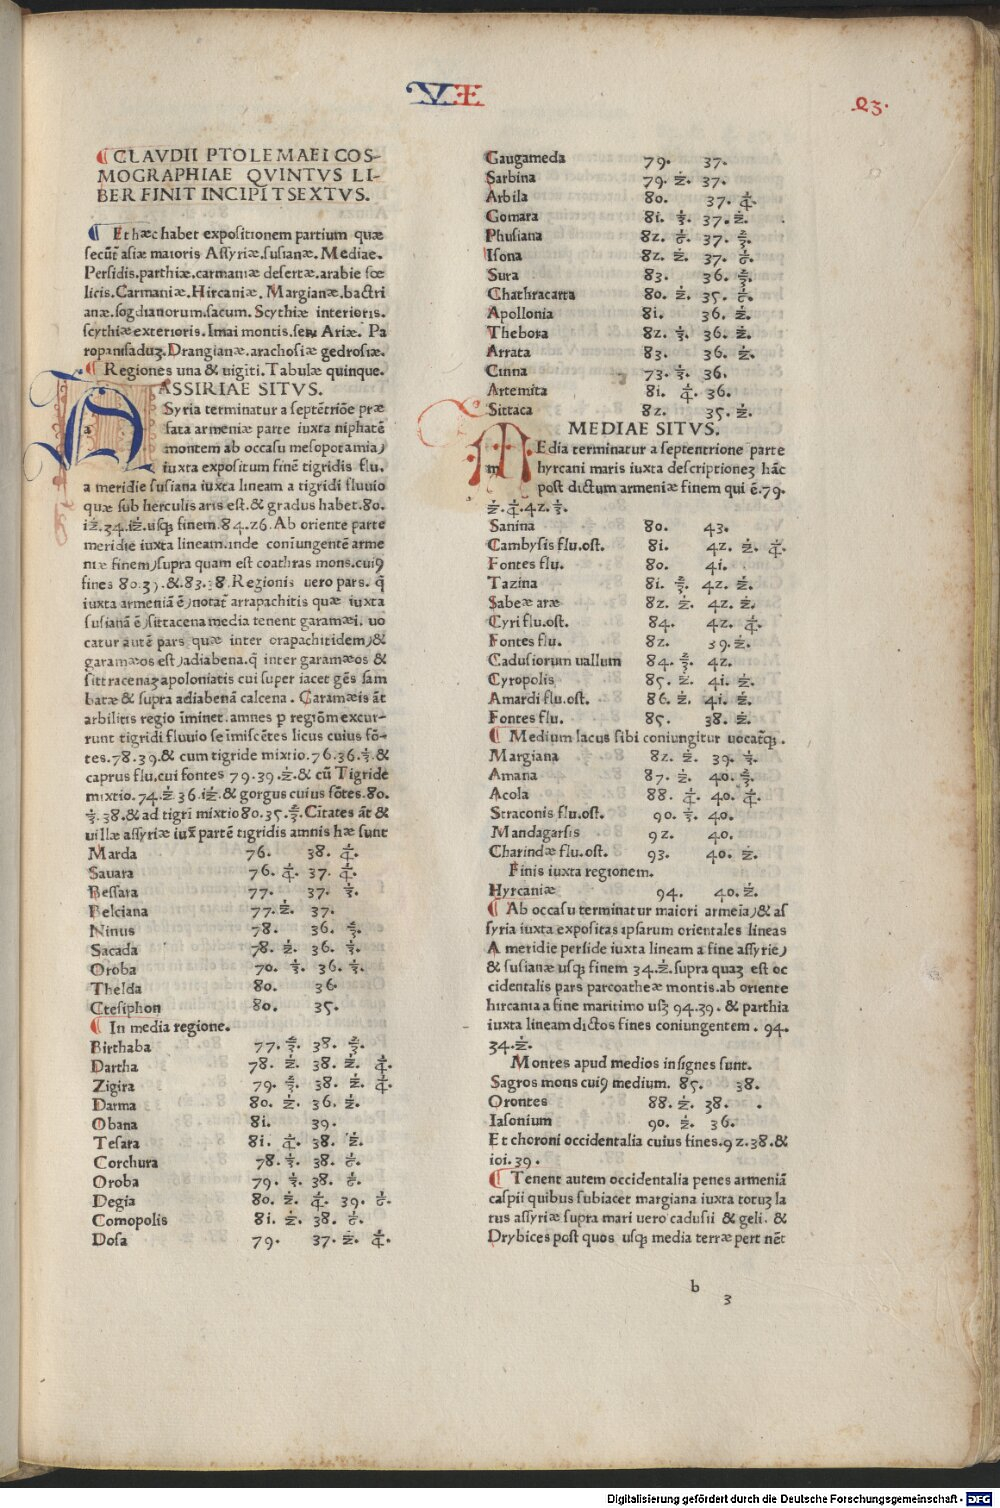 VI
¶ CLAVDII PTOLEMAEI COS-
MOGRAPHIAE QVINTVS LI-
BER FINIT INCIPIT SEXTVS.
¶ Et hæc habet expositionem partium quæ
secūt asiæ maioris Assyriæ.susianæ. Mediae.
Persidis.parthiæ.carmaniæ desertæ.arabie fœ
licis.Carmaniæ.Hircaniæ. Margianæ.bactri
anæ.sogdianorum.sacum. Scythiæ interioris.
scythiæ exterioris.Imai montis.seu Ariæ. Pa
ropanisaduȝ.Drangianæ.arachosiæ gedrosiæ.
¶ Regiones una & uigiti.Tabulæ quinque.
ASSIRIAE SITVS.
Syria terminatur a septētriōe præ
fata armeniæ parte iuxta niphatē
montem ab occasu mesopotamia,
iuxta expositum finē tigridis flu.
a meridie susiana iuxta lineam a tigridi fluuio
quæ sub herculis aris est.& gradus habet.80.
iƵ.34.iƵ.usqȝ finem.84.26.Ab oriente parte
meridie iuxta lineam.inde coniungentē arme
niæ finem,supra quam est coathras mons.cui9
fines 80.3).&.83.38.Regionis uero pars. q̄
iuxta armeniā ē,notat̄ arrapachitis quæ iuxta
susianā ē,sittacena media tenent garamæi. uo
catur autē pars quæ inter orapachitidem,&
garamæos est,adiabena.q̄ inter garamæos &
sittracenaȝ apoloniatis cui super iacet gēs sam
batæ & supra adiabenā calcena. Garamæis āt
arbilitis regio īminet.amnes p regiōm excur-
runt tigridi fluuio se imiscētes licus cuius fō-
tes.78.39.& cum tigride mixtio.76.36.⅓.&
caprus flu.cui fontes 79.39.Ƶ.& cū Tigride
mixtio.74.Ƶ.36.iƵ.& gorgus cuius fōtes.80.
⅓.38.& ad tigri mixtio 80.35.⅔.Citates āt &
uillæ assyriæ iux̄ partē tigridis amnis hæ sunt
Marda 76. 38. ¼.
Sauara 76. ¼. 37. ¼.
Bessara 77. 37. ⅓.
Belciana 77.Ƶ. 37.
Ninus 78. 36. ⅔.
Sacada 78. Ƶ. 36. ⅓.
Oroba 70. ⅓. 36. ⅓.
Thelda 80. 36.
Ctesiphon 80. 35.
¶ In media regione.
Birthaba 77. ⅔. 38. ⅔.
Dartha 78. Ƶ. 38. Ƶ. ¼.
Zigira 79. ⅔. 38. Ƶ. ¼.
Darma 80. Ƶ. 36. Ƶ.
Obana 8i. 39.
Tesara 8i. ¼. 38. Ƶ.
Corchura 78.⅓. 38. ⅙.
Oroba 79. ⅓. 38. ⅙.
Degia 80. Ƶ. ¼. 39. ⅙.
Comopolis 8i. Ƶ. 38. ⅙.
Dosa 79. 37. Ƶ. ¼.
Gaugameda 79. 37.
Sarbina 79. Ƶ. 37.
Arbila 80. 37. ¼.
Gomara 8i. ⅓. 37.Ƶ.
Phusiana 82. ⅙. 37. ⅔.
Isona 82. Ƶ. 37. ⅙.
Sura 83. 36. ⅔.
Chathracarta 80. Ƶ. 35. ⅙.
Apollonia 8i. 36. Ƶ.
Thebora 82. ⅓. 36. Ƶ.
Arrata 83. 36. Ƶ.
Cinna 73. ⅓. 36.
Artemita 8i. ¼. 36.
Sittaca 82. 35. Ƶ.
MEDIAE SITVS.
MEdia terminatur a septentrione parte
hyrcani maris iuxta descriptioneȝ hāc
post dictum armeniæ finem qui ē.79.
Ƶ.¼.42.⅓.
Sanina 80. 43.
Cambysis flu.ost. 8i. 42. Ƶ. ¼.
Fontes flu. 80. 4i.
Tazina 8i. ⅔. 42. Ƶ.
Sabeæ aræ 82. Ƶ. 42. Ƶ.
Cyri flu.ost. 84. 42. ¼.
Fontes flu. 82. 39.Ƶ.
Cadusiorum uallum 84. ⅔. 42.
Cyropolis 85. Ƶ. 4i. Ƶ.
Amardi flu.ost. 86. Ƶ. 4i. Ƶ.
Fontes flu. 85. 38. Ƶ.
¶ Medium lacus sibi coniungitur uocat̄qȝ.
Margiana 82. Ƶ. 39. ⅓.
Amana 87. Ƶ. 40. ⅔.
Acola 88. ¼. 40. ¼.
Straconis flu.ost. 90. ⅓. 40.
Mandagarsis 92. 40.
Charindæ flu.ost. 93. 40. Ƶ.
Finis iuxta regionem.
Hyrcaniæ 94. 40.Ƶ.
¶ Ab occasu terminatur maiori armeīa,& as
syria iuxta expositas ipsarum orientales lineas
A meridie perside iuxta lineam a fine assyrie,
& susianæ usqȝ finem 34.Ƶ.supra quaȝ est oc
cidentalis pars parcoatheæ montis.ab oriente
hircania a fine maritimo usȝ 94.39. & parthia
iuxta lineam dictos fines coniungentem . 94.
34.Ƶ.
Montes apud medios insignes sunt.
Sagros mons cui9 medium. 85. 38.
Orontes 88. Ƶ. 38.
Iasonium 90. Ƶ. 36.
Et choroni occidentalia cuius fines.92.38.&
ioi.39.
¶ Tenent autem occidentalia penes armeniā
caspii quibus subiacet margiana iuxta totuȝ la
tus assyriæ supra mari uero cadusii & geli. &
Drybices post quos usqȝ media terræ pert nēt
b
3
Digitalisierung gefördert durch die Deutsche Forschungsgemeinschaft - DFG